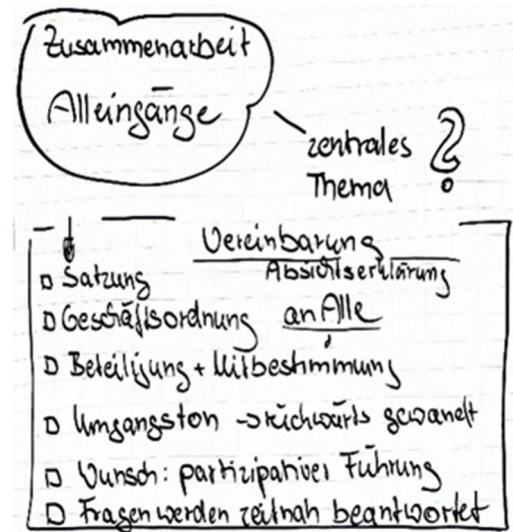 Zusammenarbeit
Alleingänge
zentrales
Thema ?
Vereinbarung
Absichtserklärung
□ Satzung
□ Geschäftsordnung an Alle
□ Beteiligung + Mitbestimmung
□ Umgangston → rückwärts gewandt
□ Wunsch: partizipativer Führung
□ Fragen werden zeitnah beantwortet